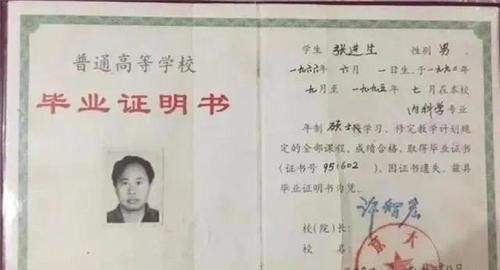 普通高等学校
毕业证明书
学生 张进生 性别 男
一九六六年 六月 一日生,于一九九二年
九月至 一九九五年 七月在本校
内科学 专业
年制 硕士班学习,修完教学计划规
定的全部课程,成绩合格,取得毕业证书
(证书号 951602),因证书遗失,兹具
毕业证明书为凭。
校(院)长: 许智宏
校 名: